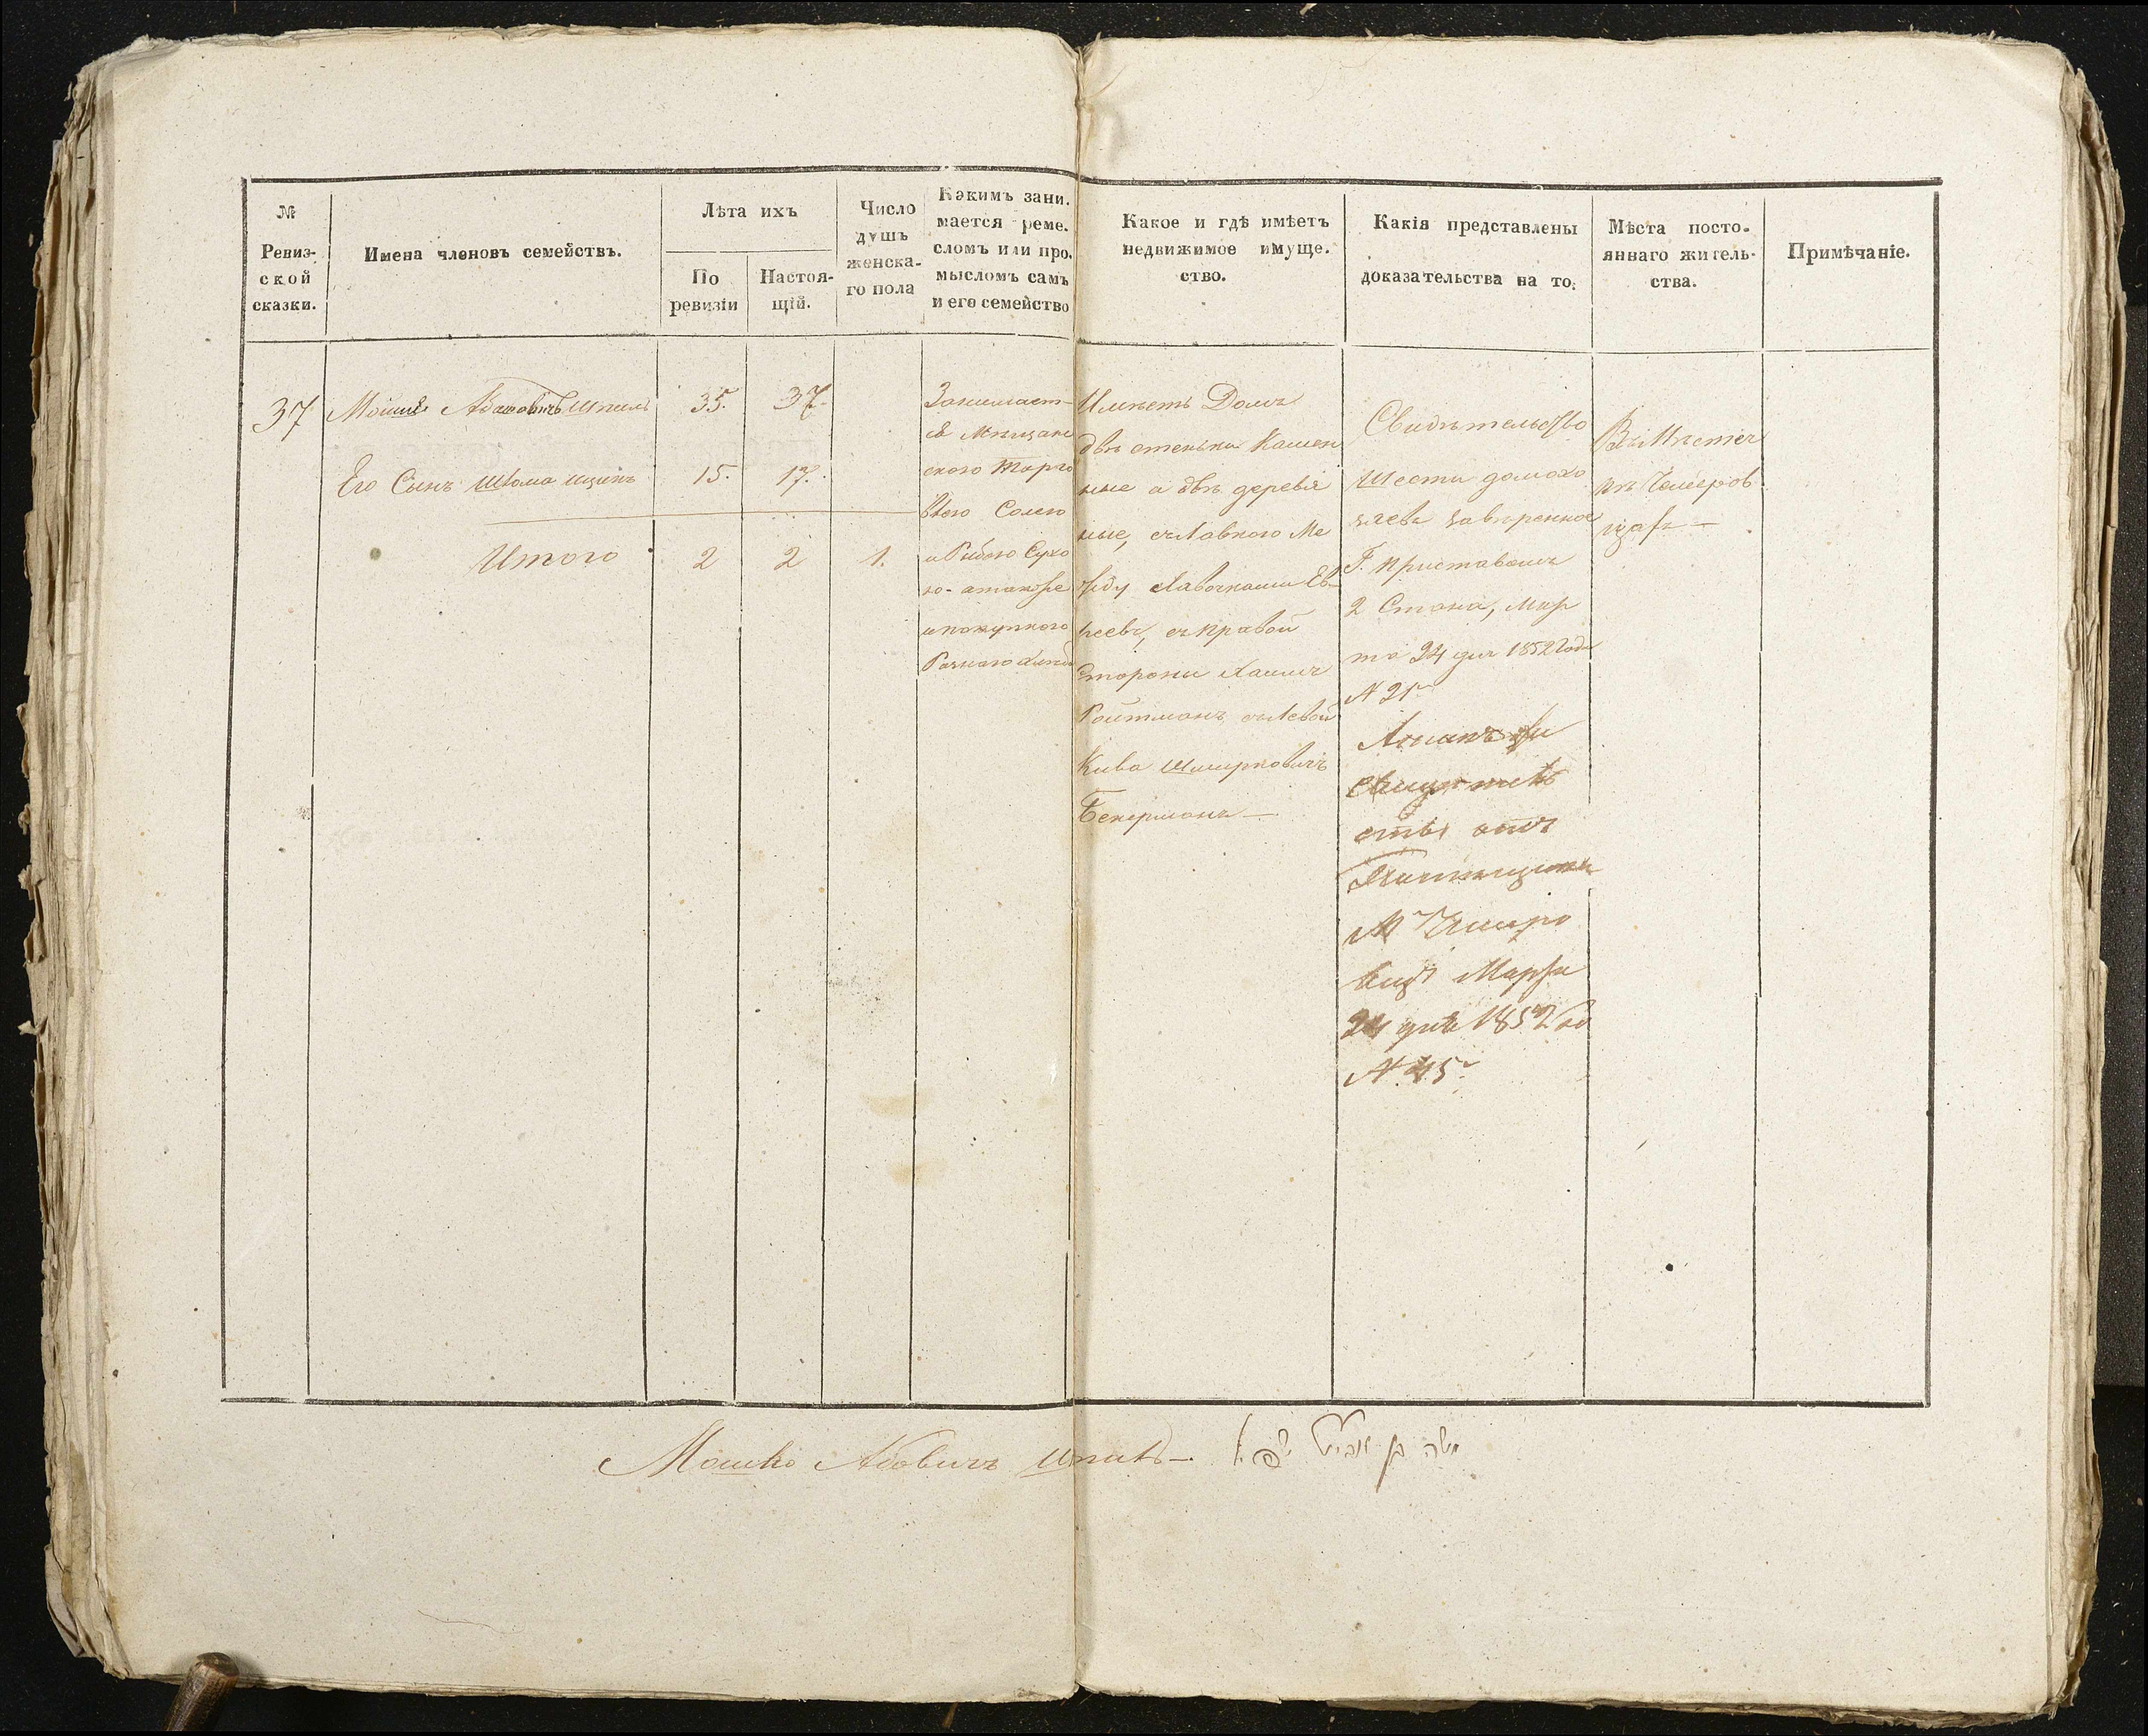 №
Ревиз-
ской
сказки.
Имена членовъ семействъ.
Лѣта ихъ
По
ревизіи
Настоя-
щій.
Число
душъ
женска-
го пола
Какимъ зани-
мается реме-
сломъ или про-
мысломъ самъ
и его семейство
Какое и гдѣ имѣетъ
недвижимое имуще-
ство.
Какія представлены
доказательства на то.
Мѣста посто-
яннаго житель-
ства.
Примѣчаніе.
37
Мошко Абовичъ Шпиль
35.
37.
Его Сынъ Шлома
15.
17.
Итого
2
2
1.
Занимает-
ся Мѣщан
скою Торго
влею Солею
и Рибою Сухо
ю а также
и покупкою
Разнаго хлѣба
Имѣетъ Домъ
двѣ стенки Камен
ные а двѣ деревя
ные, съ Лавкою Ме
жду Лавочками Ев-
реевъ, съ правой
Стороны Хаимъ
Ройтманъ, съ Левой
Кива Шмирковичъ
Бекерманъ —
Свидѣтельство
Шести домохо
зяевъ завѣренное
Г. Приставомъ
2 Стана, Мар
та 24 дня 1852 года
№ 21
А также и
свидѣтель
ство отъ
М Чемеро
вецъ Марта
24 дня 1852 го
№ 45
Въ Местеч
кѣ Чемеров
цахъ —
Мошко Абовичъ Шпиль —
משה בן